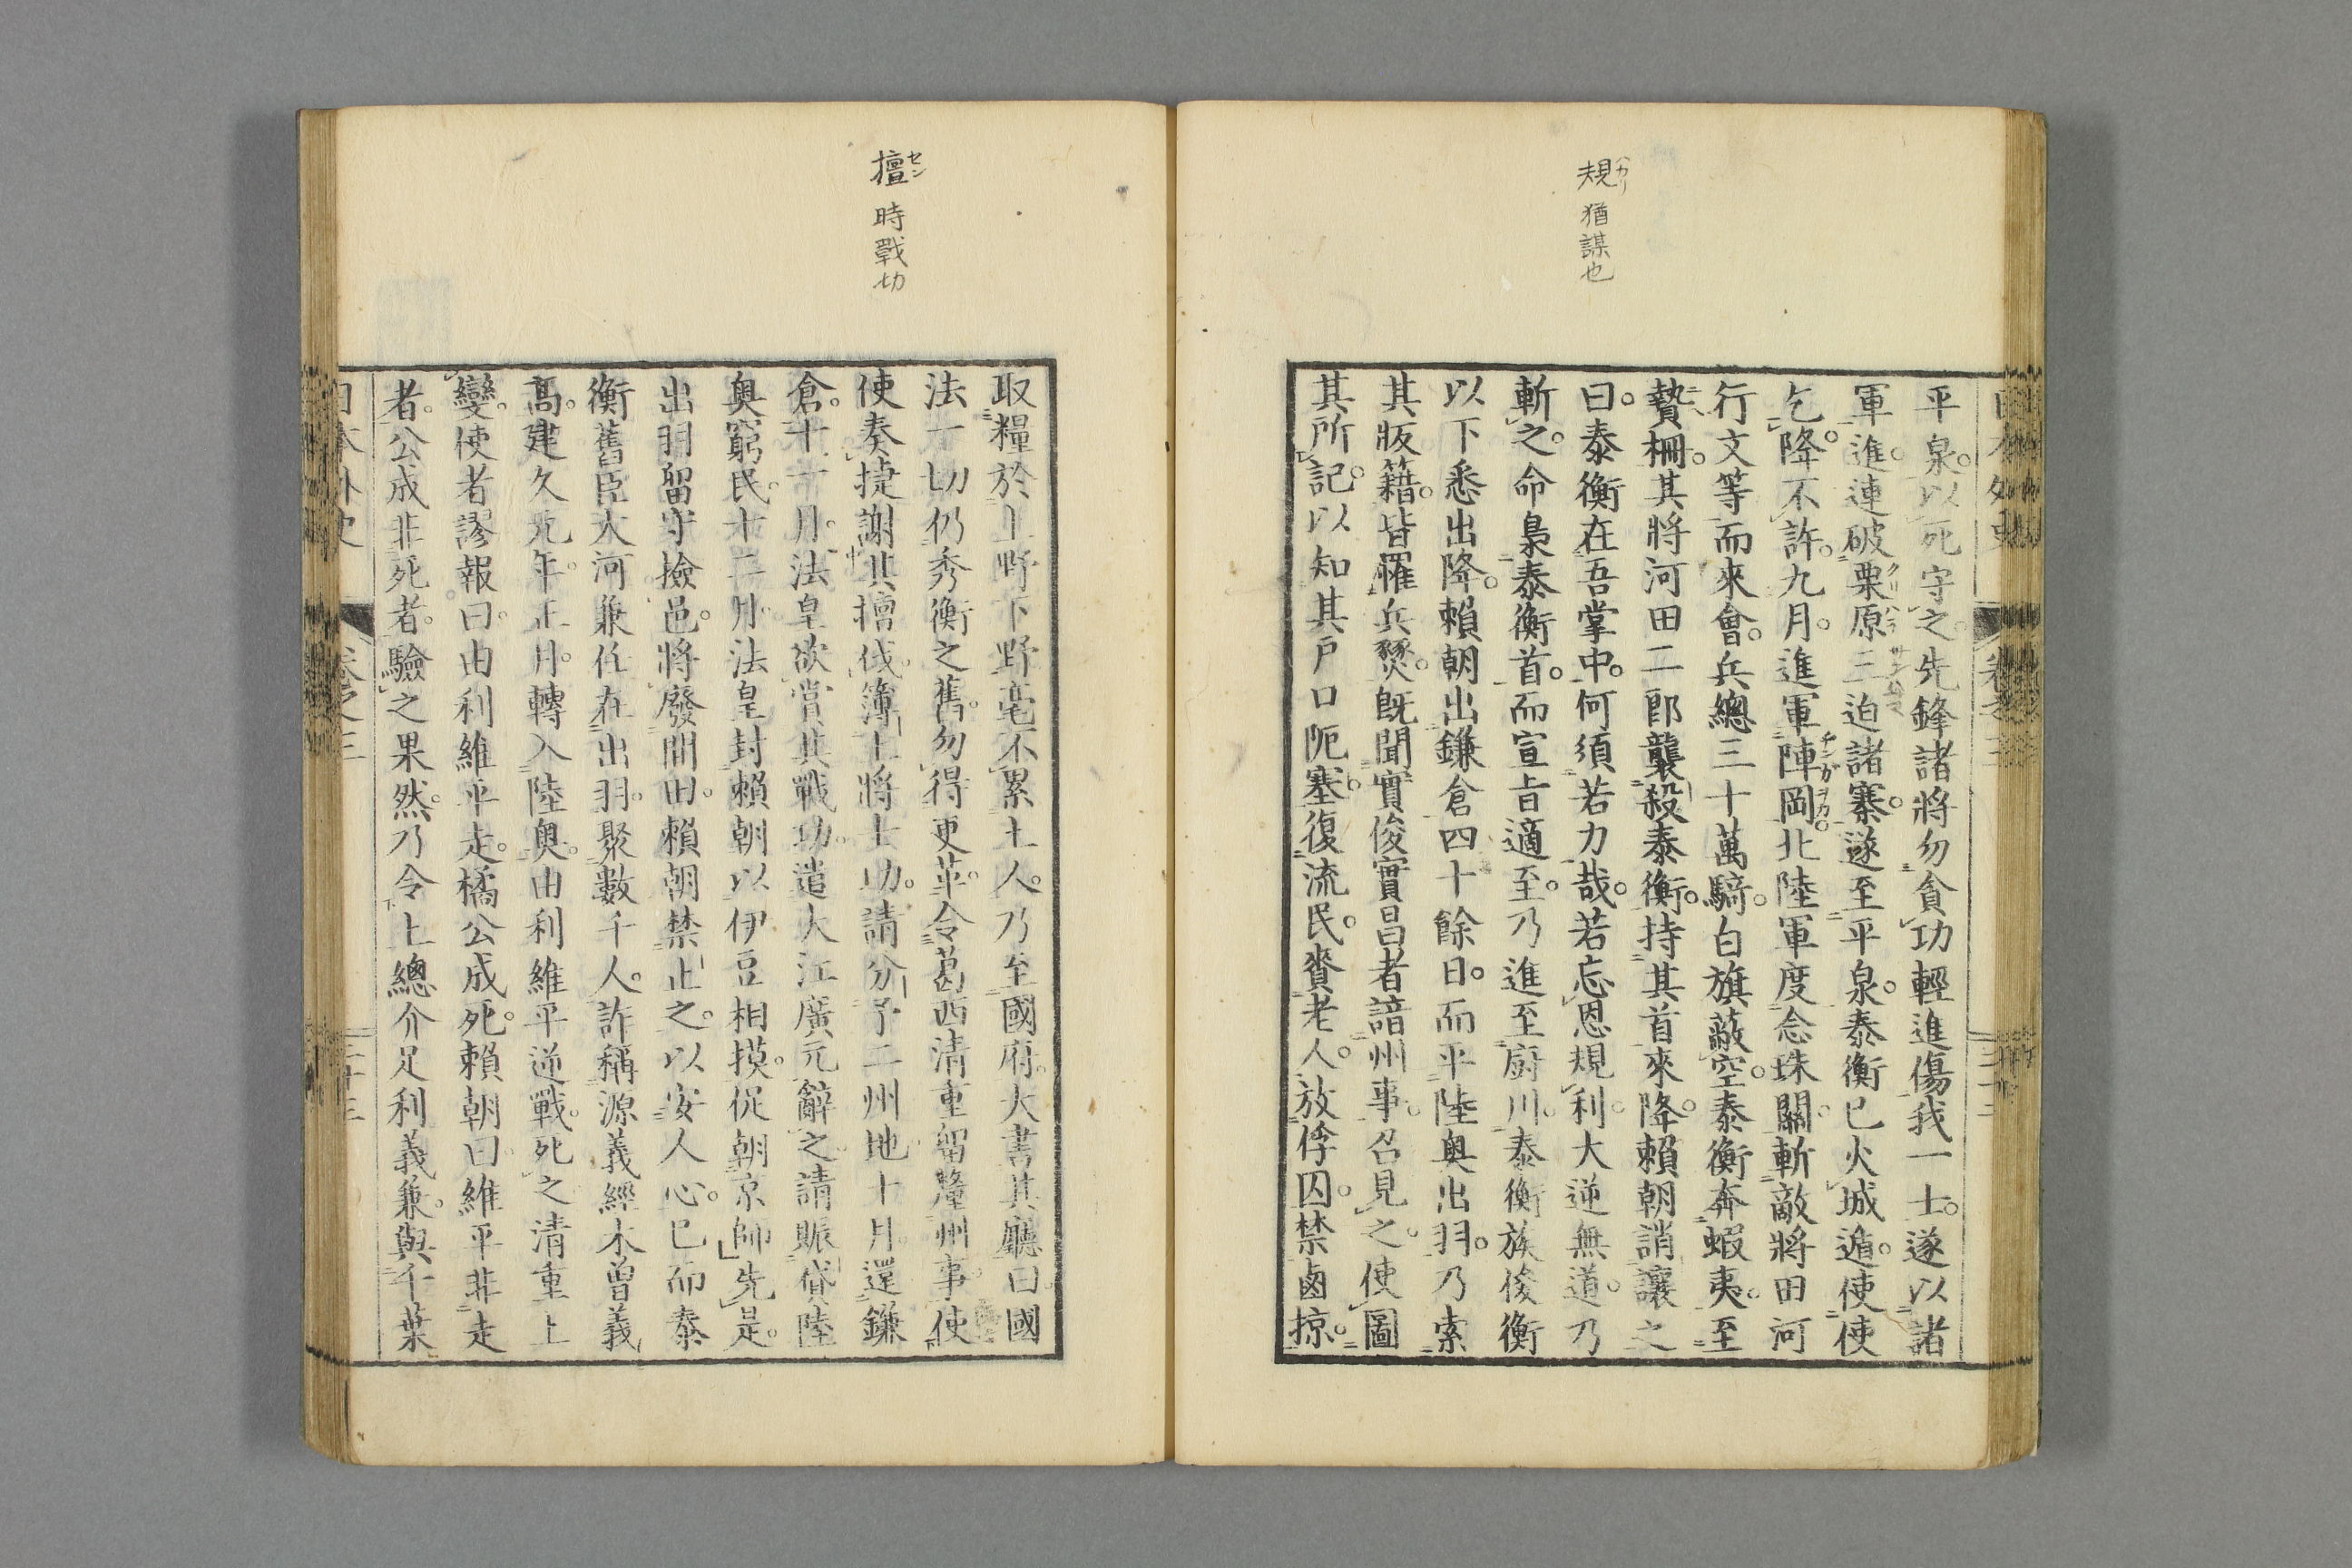 規 猶謀也
平泉。以死守之。先鋒諸將勿貪功輕進傷我一士。遂以諸
軍進。連破栗原三迫諸寨。遂至平泉。泰衡已火城遁。使使
乞降。不許。九月。進軍陣岡。北陸軍度念珠關。斬敵將田河
行文等而來會。兵總三十萬騎。白旗蔽空。泰衡奔蝦夷。至
贄柵。其將河田二郎襲殺泰衡。持其首來降。賴朝誚讓之
曰。泰衡在吾掌中。何須若力哉。若忘恩規利。大逆無道。乃
斬之。命梟泰衡首。而宣旨適至。乃進至廚川。泰衡族俊衡
以下悉出降。賴朝出鎌倉四十餘日。而平陸奥出羽。乃索
其版籍。皆罹兵燹。既聞實俊實昌者諳州事。召見之。使圖
其所記。以知其戶口阨塞。復流民。賚老人。放俘囚。禁鹵掠。
擅 セン 時戰切
取糧於上野下野。毫不累土人。乃至國府。大書其廳曰。國
法一切仍秀衡之舊。勿得更革。令葛西清重留釐州事。使
使奏捷。謝其擅伐。簿上將士功。請分予二州地。十月。還鎌
倉。十一月。法皇欲賞其戰功。遣大江廣元辭之。請賑貸陸
奥窮民。十二月。法皇封賴朝以伊豆相摸。促朝京師。先是。
出羽留守撿邑。將廢間田。賴朝禁止之。以安人心。已而泰
衡舊臣大河兼任在出羽。聚數千人。詐稱源義經木曾義
高。建久元年。正月。轉入陸奥。由利維平逆戰。死之。清重上
變。使者謬報曰。由利維平走。橘公成死。賴朝曰。維平非走
者。公成非死者。驗之果然。乃令上總介足利義兼。與千葉
日本外史 卷之三